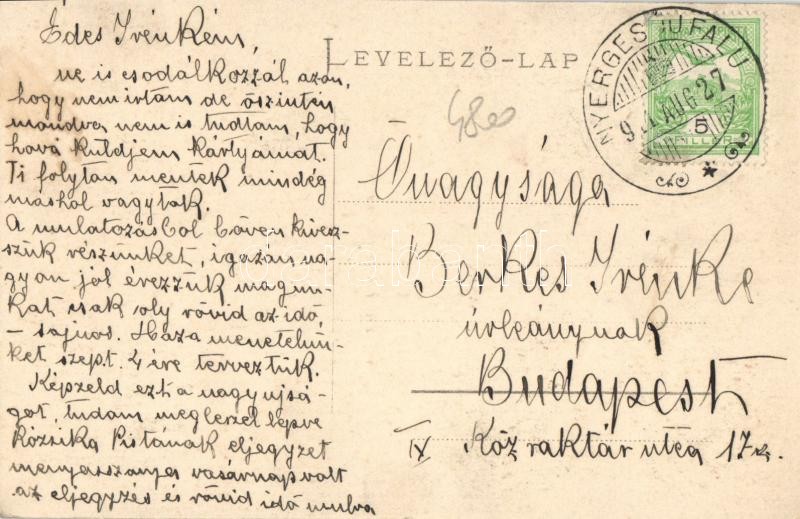 Édes Irénkém,
ne is csodálkozzál azon,
hogy nem irtam de őszintén
mondva nem is tudtam, hogy
hová küldjem kártyámat.
Ti folyton mentek mindég
máshol vagytok.
A mulatozásból bőven kivesz-
szük részünket, igazán na-
gyon jól érezzük magun-
kat csak oly rövid az idő,
– sajnos. Haza menetelün-
ket szept. 4 ére terveztük.
Képzeld ezt a nagy ujsá-
got, tudom meglepsz lepve
Rózsika Pistának eljegyzet
menyasszonya vasárnap volt
az eljegyzés és rövid idő mulva
LEVELEZŐ-LAP
4800
NYERGESÚJFALU
AUG 27
5
FILLÉR
Őnagysága
Berkes Irénke
úrleánynak
Budapest
IX Közraktár utca 17z.
darabanth